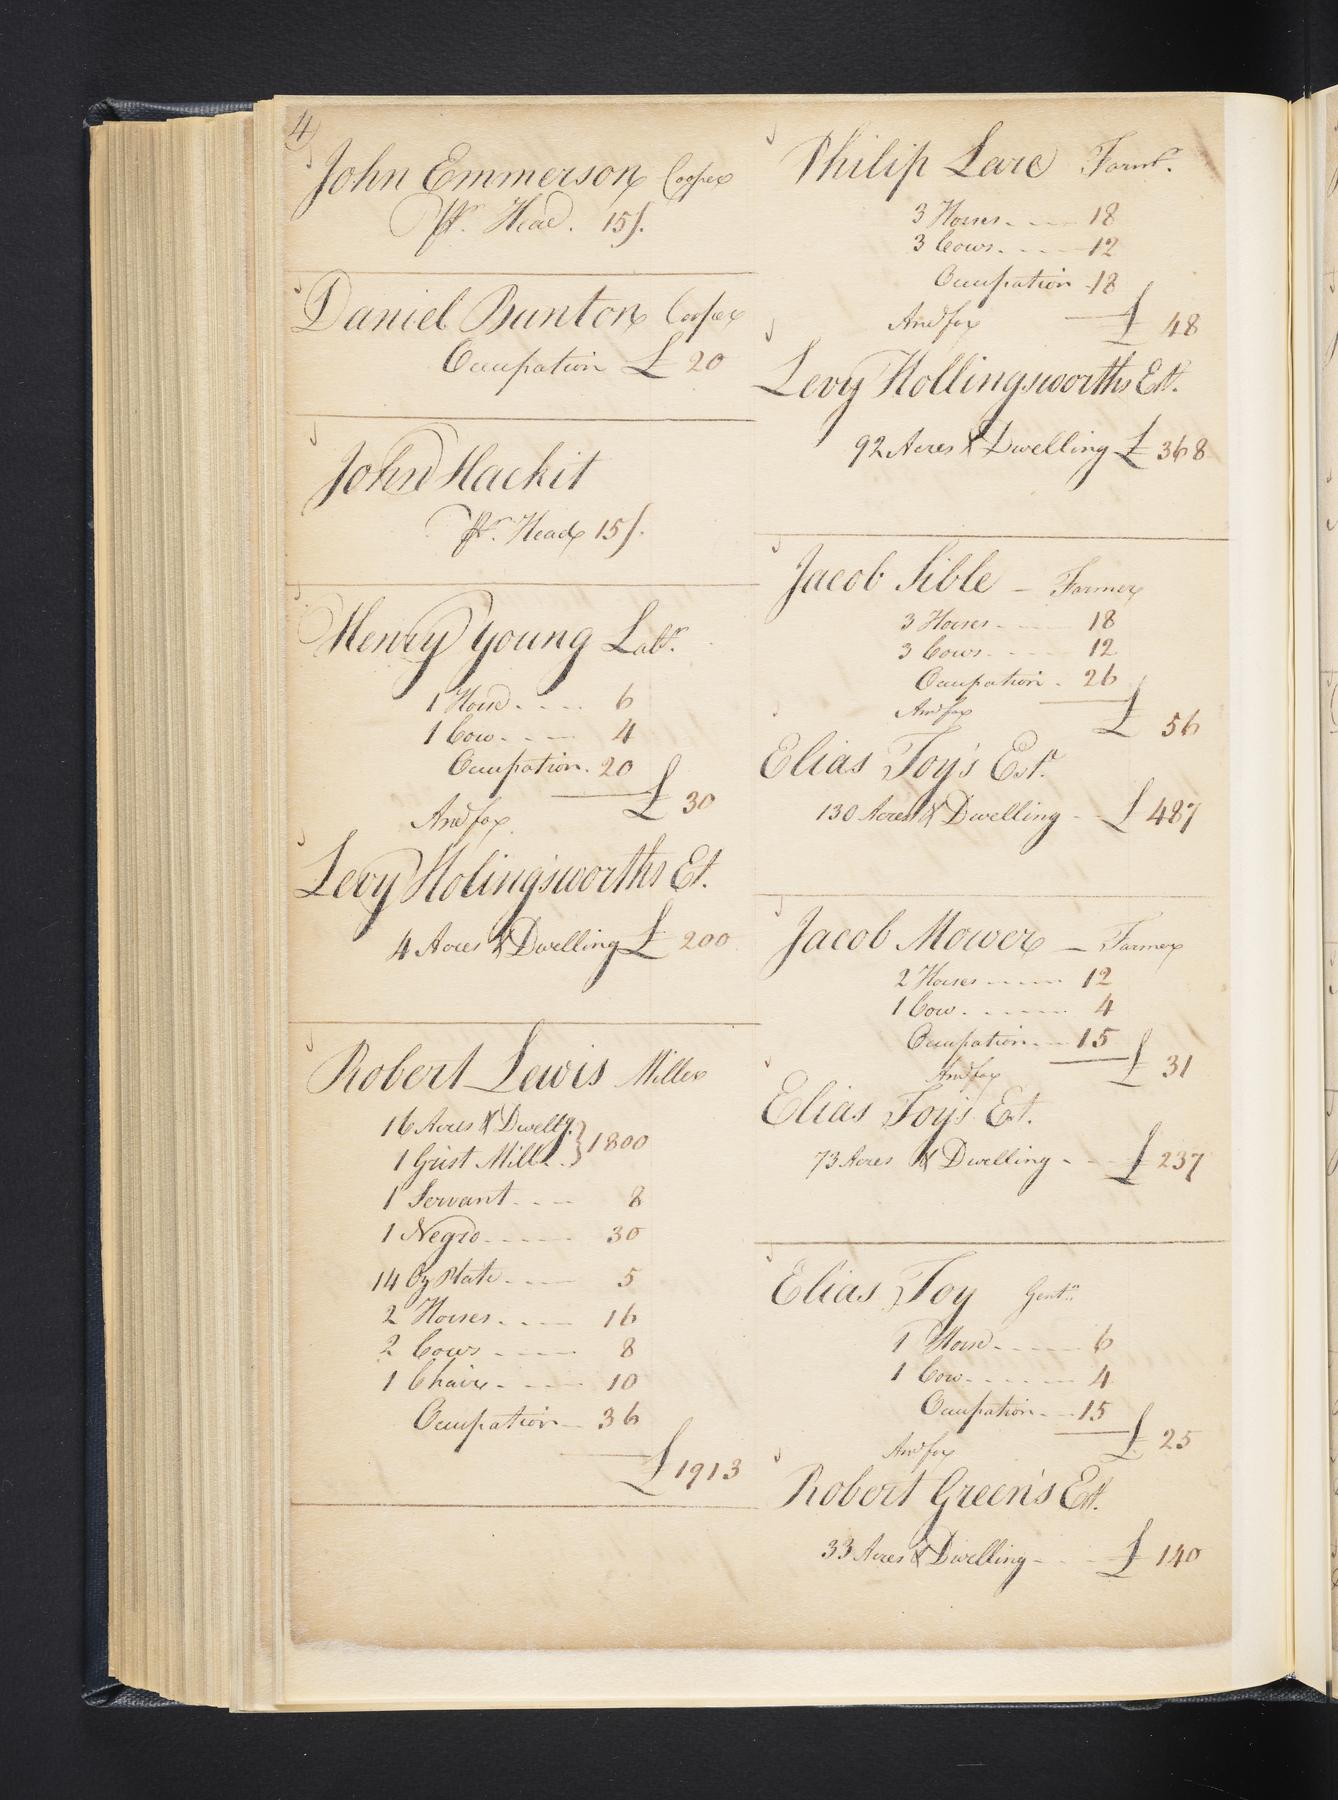 4
John Emmerson Cooper
Pr. Head. 15/.
Daniel Bunton Cooper
Occupation £ 20
John Hackit
Pr. Head 15/.
Henry Young Labr.
1 Horse .... 6
1 Cow .... 4
Occupation. 20
£ 30
And for
Levy Holingsworths Et.
4 Acres & Dwelling £ 200
Robert Lewis Miller
16 Acres & Dwellg. } 1800
1 Grist Mill
1 Servant .... 8
1 Negro ..... 30
14 Oz Plate .... 5
2 Horses .... 16
2 Cows .... 8
1 Chair .... 10
Occupation 36
£ 1913
Philip Lare Farmr.
3 Horses .... 18
3 Cows .... 12
Occupation 18
£ 48
And for
Levy Hollingsworths Est.
92 Acres & Dwelling £ 368
Jacob Sible - Farmer
3 Horses .... 18
3 Cows .... 12
Occupation . 26
And for
£ 56
Elias Toy's Est.
130 Acres & Dwelling - £ 487
Jacob Mower - Farmer
2 Horses .... 12
1 Cow ..... 4
Occupation .. 15
And for £ 31
Elias Toy's Et.
73 Acres & Dwelling - £ 237
Elias Toy Gentn.
1 Horse ..... 6
1 Cow ...... 4
Occupation .. 15
£ 25
And for
Robert Green's Est.
33 Acres & Dwelling - £ 140